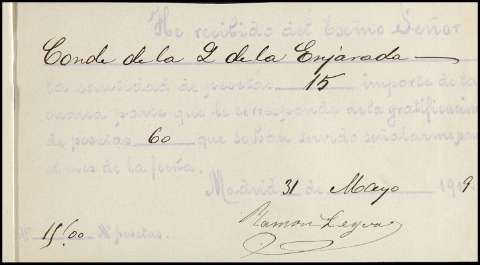 He recibido del Excmo Señor
Conde de la Q de la Enjarada
la cantidad de pesetas 15 importe de la
cuarta parte que le corresponde de la gratificación
de pesetas 60 que se han servido señalarme por
el mes de la fecha.
Madrid 31 de Mayo 19 9
Ramon Leyva
15'00 pesetas.